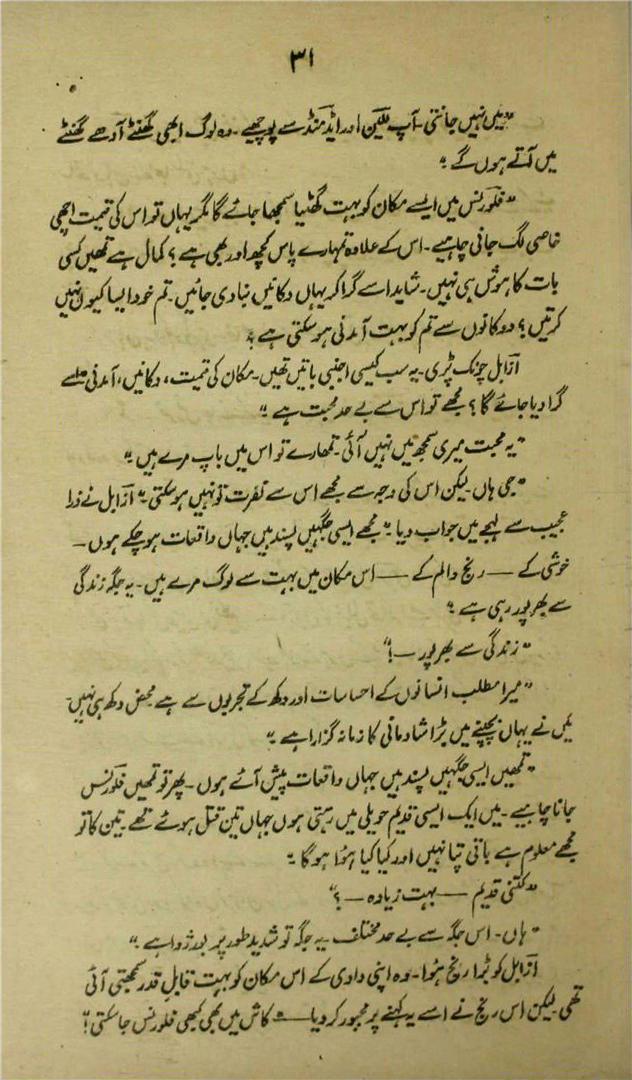 ۳۱
"میں نہیں جانتی۔ آپ للّین اور ایڈمنڈ سے پوچھیے۔ وہ لوگ ابھی گھنٹے آدھے گھنٹے
میں آتے ہوں گے۔"
"فلورنس میں ایسے مکان کو بہت گھٹیا سمجھا جائے گا مگر یہاں تو اس کی قیمت اچھی
خاصی لگ جانی چاہیے۔ اس کے علاوہ تمہارے پاس کچھ اور بھی ہے؟ کمال ہے تمھیں کسی
بات کا ہوش ہی نہیں۔ شاید اسے گرا کر یہاں دکانیں بنا دی جائیں۔ تم خود ایسا کیوں نہیں
کرتیں؟ دوکانوں سے تم کو بہت آمدنی ہو سکتی ہے۔"
ازابل چونک پڑی۔ یہ سب کیسی اجنبی باتیں تھیں۔ مکان کی قیمت، دکانیں، آمدنی
گرا دیا جائے گا؟ مجھے تو اس سے بے حد محبت ہے۔"
"یہ محبت میری سمجھ میں نہیں آئی۔ تمھارے تو اس میں باپ مرے ہیں۔"
"جی ہاں۔ لیکن اس کی وجہ سے مجھے اس سے نفرت تو نہیں ہو سکتی۔" ازابل نے ذرا
عجیب سے لہجے میں جواب دیا۔ "مجھے ایسی جگہیں پسند ہیں جہاں واقعات ہو چکے ہوں —
خوشی کے — رنج و الم کے — اس مکان میں بہت سے لوگ مرے ہیں۔ یہ جگہ زندگی
سے بھرپور رہی ہے۔"
"زندگی سے بھرپور —!"
"میرا مطلب انسانوں کے احساسات اور دکھ کے تجربوں سے ہے محض دکھ ہی نہیں۔
میں نے یہاں بچپنے میں بڑا شادمانی کا زمانہ گزارا ہے۔"
"تمھیں ایسی جگہیں پسند ہیں جہاں واقعات پیش آئے ہوں۔ پھر تو تمھیں فلورنس
جانا چاہیے۔ میں ایک ایسی قدیم حویلی میں رہتی ہوں جہاں تین قتل ہوئے تھے۔ تین کا تو
مجھے معلوم ہے باقی پتا نہیں اور کیا کیا ہوا ہو گا۔"
"کتنی قدیم — بہت زیادہ —؟"
"ہاں۔ اس جگہ سے بے حد مختلف۔ یہ جگہ تو شدید طور پر بورژوا ہے۔"
ازابل کو بڑا رنج ہوا۔ وہ اپنی دادی کے اس مکان کو بہت قابلِ قدر سمجھتی آئی
تھی۔ لیکن اس رنج نے اسے یہ کہنے پر مجبور کر دیا — "کاش میں بھی کبھی فلورنس جا سکتی!"